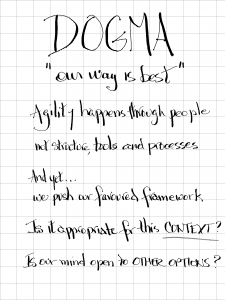 DOGMA
"our way is best"
Agility happens through people
not structure, tools and processes
And yet...
we push our favoured framework.
Is it appropriate for this CONTEXT?
Is our mind open to OTHER OPTIONS?